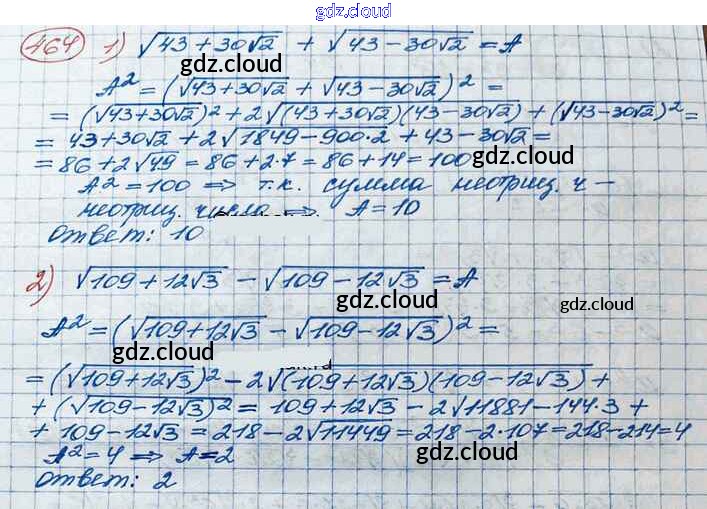 gdz.cloud
464 1) √43+30√2 + √43-30√2 = A
gdz.cloud
A² = (√43+30√2 + √43-30√2)² =
= (√43+30√2)² + 2√(43+30√2)(43-30√2) + (√43-30√2)² =
= 43+30√2 + 2√1849-900·2 + 43-30√2 =
= 86+2√49 = 86+2·7 = 86+14 = 100
gdz.cloud
A² = 100 ⇒ т.к. сумма неотриц. ч-
неотриц. числа ⇒ A = 10
Ответ: 10
gdz.cloud
2) √109+12√3 - √109-12√3 = A
gdz.cloud
gdz.cloud
A² = (√109+12√3 - √109-12√3)² =
gdz.cloud
= (√109+12√3)² - 2√(109+12√3)(109-12√3) +
+ (√109-12√3)² = 109+12√3 - 2√11881-144·3 +
+ 109-12√3 = 218-2√11449 = 218-2·107 = 218-214 = 4
A² = 4 ⇒ A = 2
gdz.cloud
Ответ: 2